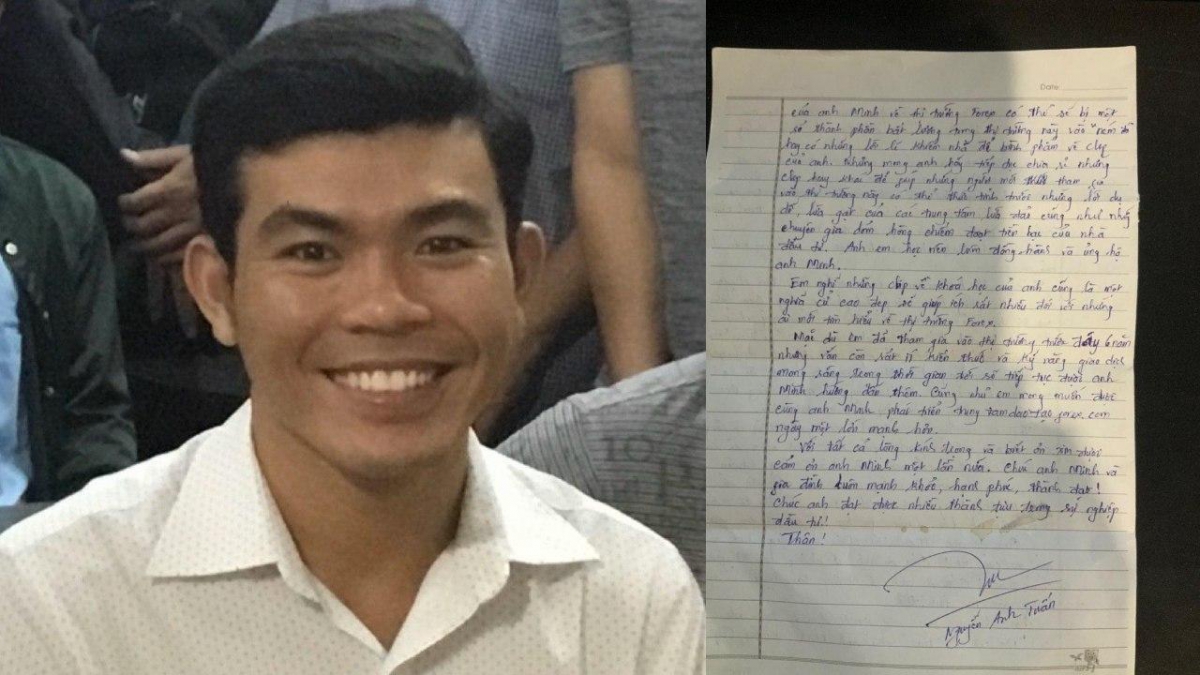 Date
của anh Minh về thị trường Forex có thể sẽ bị một
số thành phần bất lương trong thị trường này vào "ném đá"
hay có những lời lẽ khiếm nhã để bình phẩm về clip
của anh. Nhưng mong anh hãy tiếp tục chia sẻ những
clip hay khác để giúp những người mới tham gia
vào thị trường này có thể thức tỉnh trước những lời dụ
dỗ, lừa gạt của các trung tâm lừa đảo cũng như những
chuyên gia dỏm hòng chiếm đoạt tiền bạc của nhà
đầu tư. Anh em học nên luôn đồng hành và ủng hộ
anh Minh.
Em nghĩ những clip về khoá học của anh cũng là một
nghĩa cử cao đẹp sẽ giúp ích rất nhiều đối với những
ai mới tìm hiểu về thị trường Forex.
Mặc dù em đã tham gia vào thị trường trước đây 6 năm
nhưng vẫn còn rất ít kiến thức và kỹ năng giao dịch
mong rằng trong thời gian tới sẽ tiếp tục được anh
Minh hướng dẫn thêm. Cũng như em mong muốn được
cùng anh Minh phát triển trungtamdaotaoforex.com
ngày một lớn mạnh hơn.
Với tất cả lòng kính trọng và biết ơn xin được
cảm ơn anh Minh một lần nữa. Chúc anh Minh và
gia đình luôn mạnh khoẻ, hạnh phúc, thành đạt!
Chúc anh đạt được nhiều thành tựu trong sự nghiệp
đầu tư!
Thân!
Nguyễn Anh Tuấn